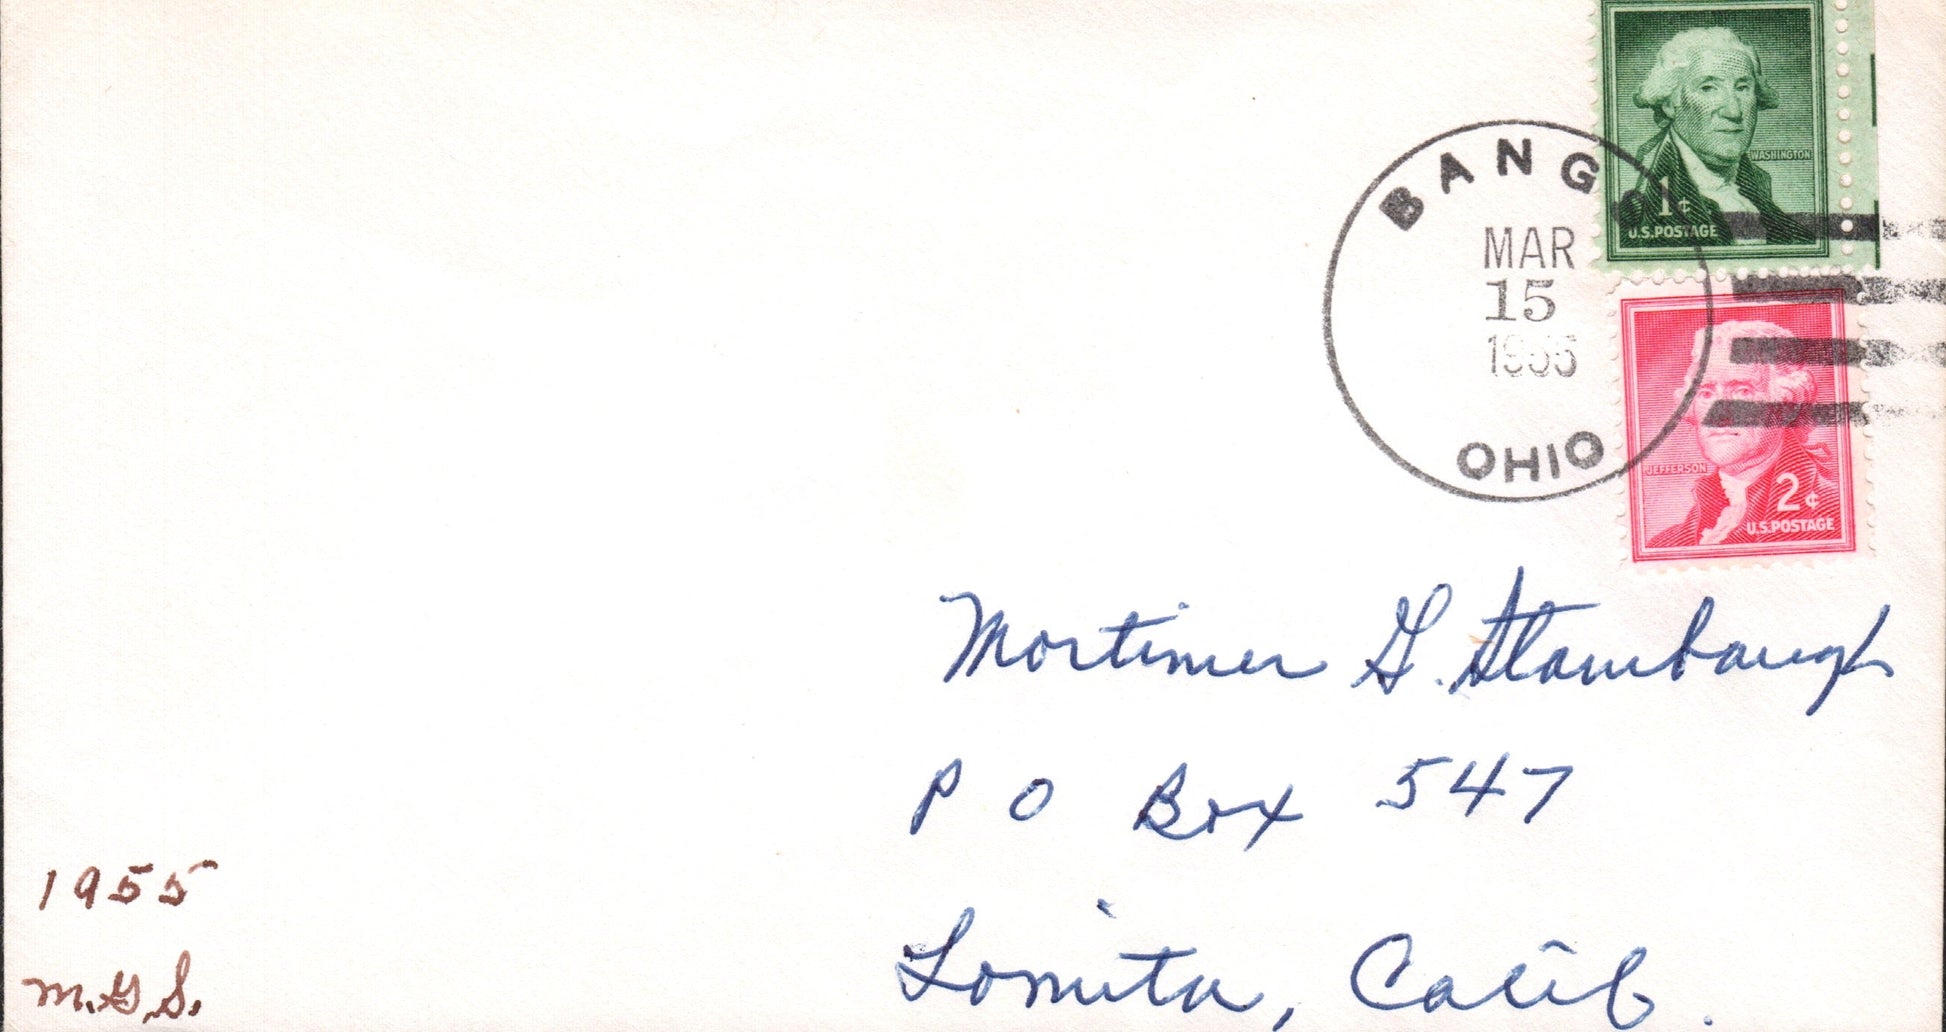 WASHINGTON
1¢
U.S.POSTAGE
BANGS
MAR
15
1955
OHIO
JEFFERSON
2¢
U.S.POSTAGE
Mortimer G. Stambaugh
P O Box 547
Lomita, Calif.
1955
M.G.S.